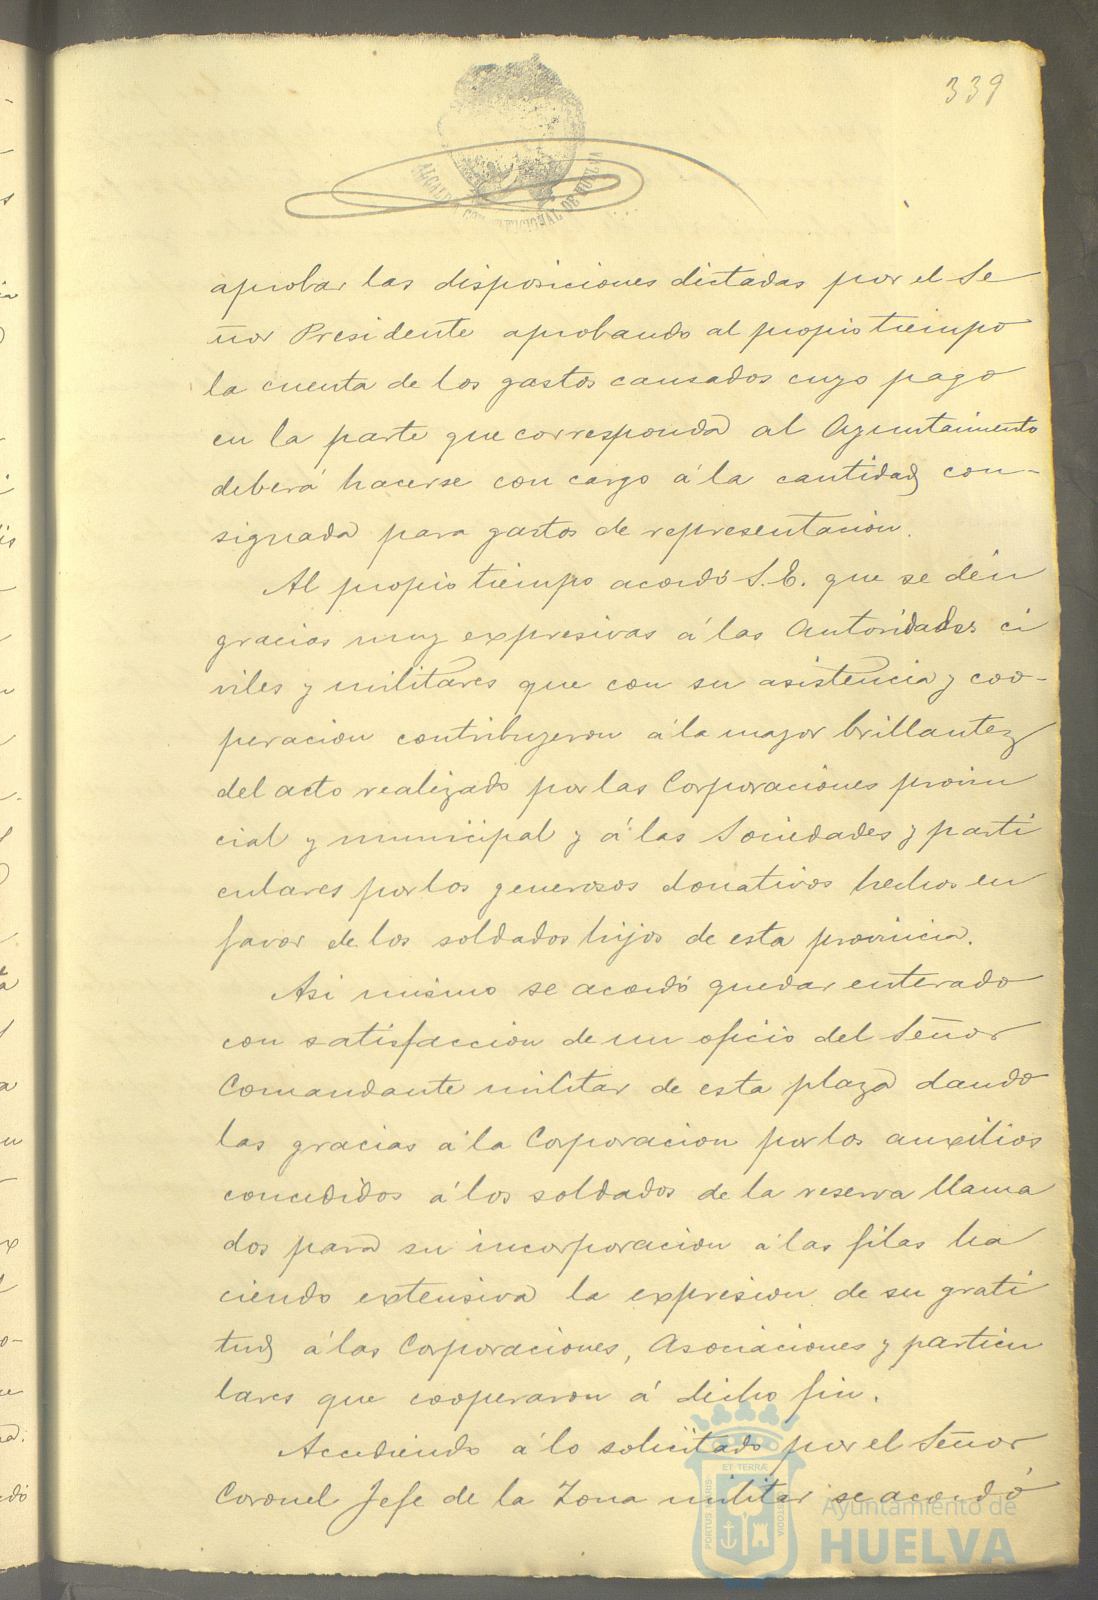 339
ALCALDIA CONSTITUCIONAL DE HUELVA
aprobar las disposiciones dictadas por el Se
ñor Presidente aprobando al propio tiempo
la cuenta de los gastos causados cuyo pago
en la parte que corresponda al Ayuntamiento
deberá hacerse con cargo á la cantidad con-
signada para gastos de representacion.
Al propio tiempo acordó S.E. que se dén
gracias muy expresivas á las Autoridades ci
viles y militares que con su asistencia y coo-
peracion contribuyeron á la mayor brillantez
del acto realizado por las Corporaciones provin
cial y municipal y á las Sociedades y parti
culares por los generosos donativos hechos en
favor de los soldados hijos de esta provincia.
Asi mismo se acordó quedar enterado
con satisfaccion de un oficio del Señor
Comandante militar de esta plaza dando
las gracias á la Corporacion por los auxilios
concedidos á los soldados de la reserva llama
dos para su incorporacion á las filas ha
ciendo extensiva la expresion de su grati
tud á las Corporaciones, Asociaciones y particu
lares que cooperaron á dicho fin.
Accediendo á lo solicitado por el Señor
Coronel Jefe de la Zona militar se acordó
PORTUS MARIS ET TERRÆ CUSTODIA
Ayuntamiento de
HUELVA